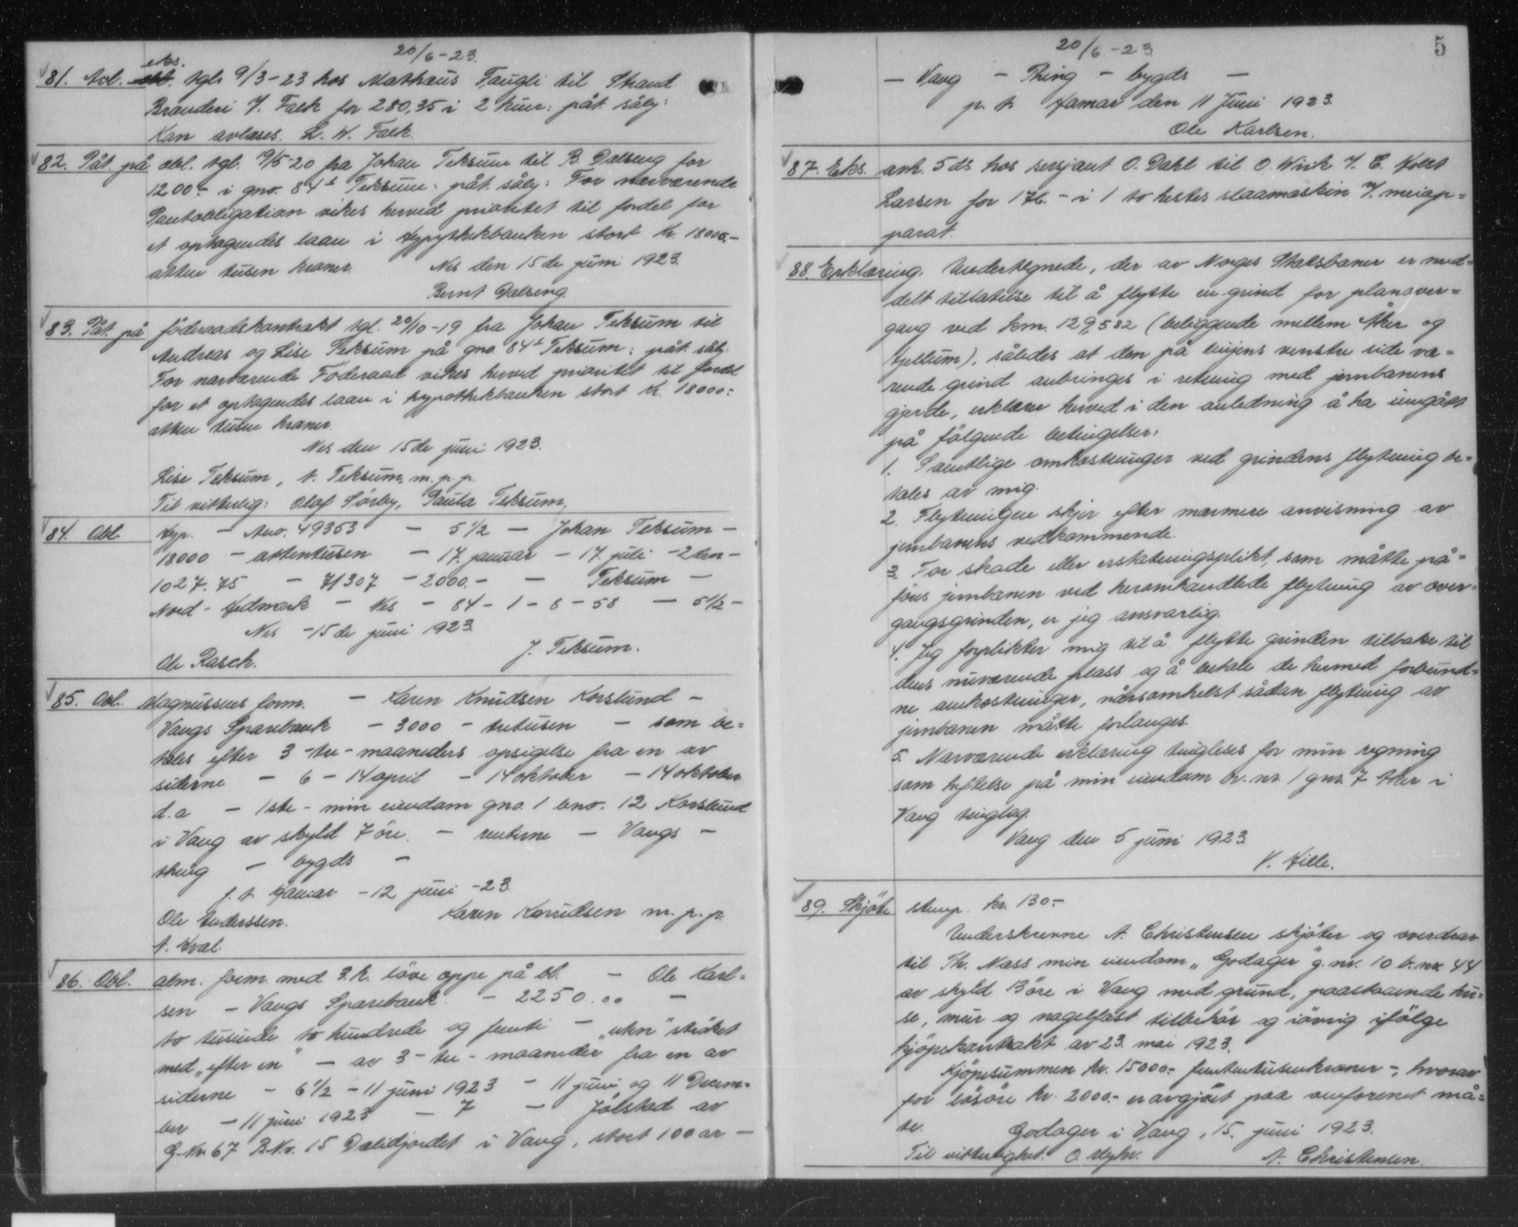 20/6-23.
81. Avl. eks. tgl. 9/3-23 hos Mathæus Taugli til Strand
Brænderi v. Falk for 280,35 i 2 kuer: påt. sålg:
Kan avlæses. L. W. Falk.
82. Påt. på obl. tgl. 19/5-20 fra Johan Teksum til B. Dalseng for
1200- i gno. 84 1 Teksum: påt. sålg: For nærværende
Panteobligation vikes herved prioritet til fordel for
et optagendes laan i Hypothekbanken stort kr 18000,-
atten tusen kroner. Nes den 15de juni 1923.
Bernt Dalseng.
83. Påt. på föderaadskontrakt tgl. 20/10-19 fra Johan Teksum til
Andreas og Lise Teksum på gno 84 1 Teksum: påt. sålg:
For nærværende Föderaad vikes herved prioritet til fordel
for et optagendes laan i hypothekbanken stort kr. 18000:
atten tusen kroner.
Nes den 15de juni 1923.
Lise Teksum, A. Teksum, m. p. p.
Til vitterlig: Olaf Sörby, Paula Teksum,
84. Obl. Hyp. - Ano. 49353 - 5 1/2 - Johan Teksum -
18000 - attentusen - 17. januar - 17. juli - 2den -
1027.75 - 71307 - 2000.- - Teksum -
Nord-Hedmark - Nes - 84 - 1 - 8 - 58 - 5 1/2 -
Nes - 15de juni 1923.
Ole Rasch. J. Teksum.
85. Obl. Magnussens form. - Karen Knudsen Korslund -
Vangs Sparebank - 3000 - tretusen - som be=
tales efter 3 - tre - maaneders opsigelse fra en av
siderne - 6 - 14 april - 14 oktober - 14 oktober
d.a - 1ste - min eiendom gno. 1 bno. 12 Korslund
i Vang av skyld 7 öre. - renterne - Vangs -
thing - bygds -
p. t. Hamar - 12 juni - 23.
Ole Anderssen. Karen Knudsen m. p. p.
A. Hval.
86. Obl. alm. form. med 3 k. löve oppe på bl. - Ole Karl=
sen - Vangs Sparebank - 2250.00 -
to tusinde to hundrede og femti - „uten" ströket
med „efter en" - av 3 - tre - maaneder fra en av
siderne - 6 1/2 - 11 juni 1923 - 11 juni og 11 Decem=
ber - 11 juni 1923 - 7 - Jölstad av
G.Nr. 67 B.Nr. 15 Dælidjordet i Vang, stort 100 ar -
20/6-23
5
- Vang - Thing - bygds -
p. t. Hamar den 11 Juni 1923.
Ole Karlsen.
87. Eks. avh. 5 ds. hos sersjant O. Dahl til O. Wiik v. C.
Larsen for 176.- i 1 to hestes slaamaskin m/ meiap=
parat.
88. Erklæring. Undertegnede, der av Norges Statsbaner er med=
delt tillatelse til å flytte en grind for planover=
gang ved km. 129,582 (beliggende mellem Åker og
Hjellum), således at den på linjens venstre side væ=
rende grind anbringes i retning med jernbanens
gjerde, erklærer herved i den anledning å ha inngått
på følgende betingelser:
1. Samtlige omkostninger ved grindens flytning be=
tales av mig.
2. Flytningen skjer efter nærmere anvisning av
jernbanens vedkommende.
3. For skade eller erstatningsplikt, som måtte på=
föres jernbanen ved heromhandlede flytning av over=
gangsgrinden, er jeg ansvarlig.
4. Jeg forplikter mig til å flytte grinden tilbake til
dens nuværende plass og å betale de hermed forbund=
ne omkostninger, nårsomhelst sådan flytning av
jernbanen måtte forlanges.
5. Nærværende erklæring tinglæses for min regning
som heftelse på min eiendom br. nr. 1 gnr. 7 Aker i
Vang tinglag.
Vang den 5 juni 1923
V. Hille.
89. Skjöte stemp. kr. 130.-
Underskrevne A. Christensen skjöter og overdrar
til Th. Næss min eiendom „Godager" g. nr. 10 b. nr. 44
av skyld 13 öre i Vang med grund, paastaaende hu=
se, mur og nagelfast tilbehör og iövrig ifölge
kjöpekontrakt av 23. mai 1923.
Kjöpesummen kr. 15000.- femtentusenkroner -, hvorav
for lösöre kr. 2000.- er avgjort paa omforenet må=
te. Godager i Vang, 15. juni 1923.
Til vitterlighet: O. A. Christensen.